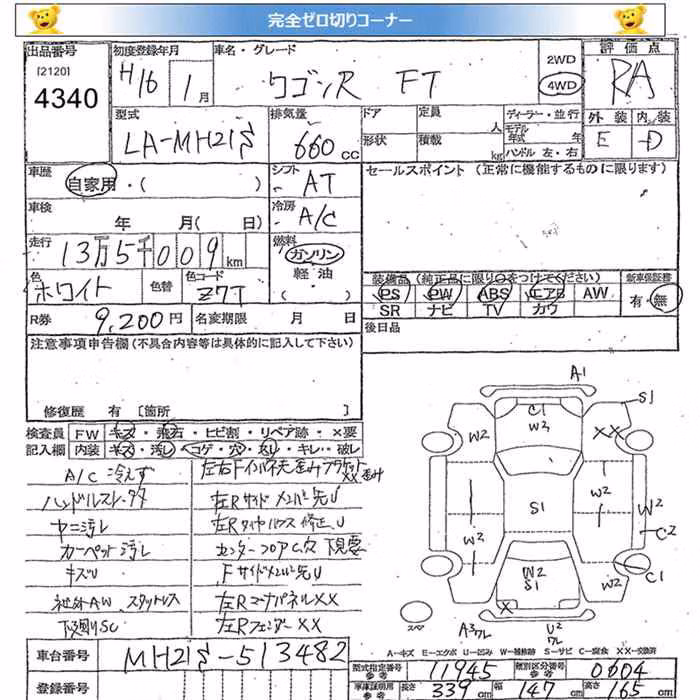 完全ゼロ切りコーナー
出品番号
[2120]
4340
初度登録年月
H16 1月
車名・グレード
ワゴンR FT
2WD
4WD
評価点
RA
型式
LA-MH21S
排気量
660cc
ドア
定員
人
形状
積載
kg
ディーラー・並行
モデル年式
年
ハンドル 左・右
外装 内装
E D
車歴
自家用・( )
シフト
AT
セールスポイント (正常に機能するものに限ります)
車検
年 月( 日)
冷房
A/C
走行
13万5千009km
燃料
ガソリン
軽油
( )
色
ホワイト
色替
色コード
Z7T
装備品(純正品に限り○をつけてください)
新車保証書
PS PW ABS エアB AW
有・無
SR ナビ TV カワ
R券
9,200円
名変期限 月 日
後日品
注意事項申告欄(不具合内容等は具体的に記入して下さい)
修復歴 有 [箇所 ]
検査員
記入欄
FW キズ・飛石・ヒビ割・リペア跡・×要
内装 キズ・汚レ・コゲ・穴・スリ・キレ・破レ
A/C冷えず
ハンドルスレ・
ヤニ汚レ
カーペット汚レ
キズU
社外AW、スタットレス
下廻りSC
左Rサイドメンバー先U
左Rタイヤハウス修正、U
センターフロアC穴 下現車
Fサイドメンバー先U
左RコーナーパネルXX
左RフェンダーXX
A1
S1
C1
W2
W2
XX
W2
S1
W2
W2
C2
W2
C1
W2
S1
X
スペ
A3ワレ
U2ワレ
A－キズ E－エクボ U－凹み W－補修跡 S－サビ C－腐食 XX－交換済
車台番号
MH21S-513482
登録番号
型式指定番号
参考
11945
類別区分番号
参考
0604
車庫証明用
参考
長さ 339cm
幅 147cm
高さ 165cm